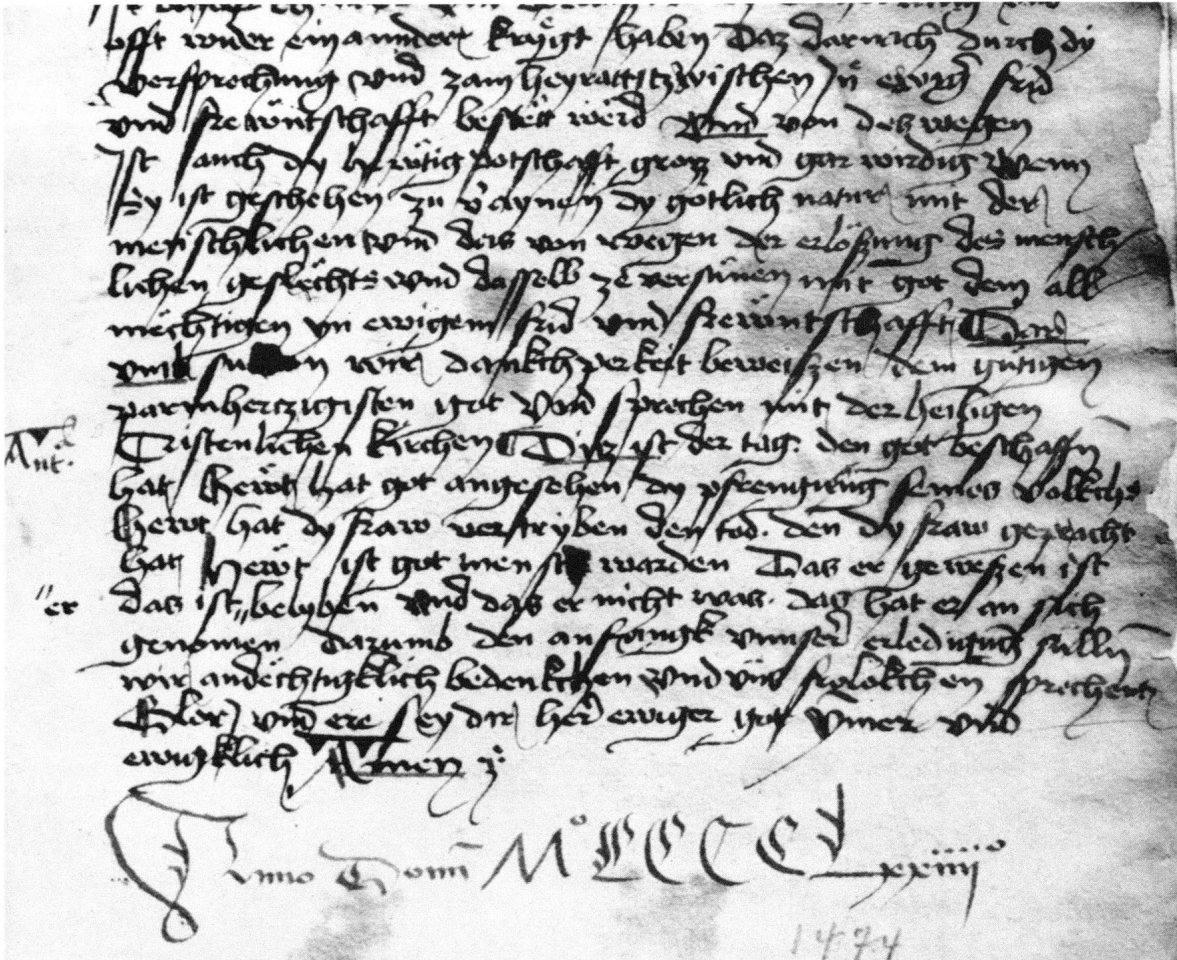 offt wider einannder krÿegt haben Daz darnach durch dy
versprechung vnd zam heyratt tzwischen In ewig frid
vnd frewntschafft bestëtt werd Vnd von dez wegen
Ist auch dy hewtig potschafft groz vnd gar wirdig Wenn
Sy ist geschehen zu v'aynen dy gotlich natur mit der
menschlichen vnd das von wegen der erlözung des mensch
lichen geslëchts vnd dasselb ze versünen mit got dem all
mëchtigen yn ewigem frid vnd frewntschafft Dar
vmb wir dankchperkeit beweiszen dem gütigen
parmhertzigisten got Vnd sprechen mit der heiligen
Ant.
Cristenlichen kirchen Ditz ist der tag. den got beschaffn
hat Hewt hat got angesehen dy seines volkchs
Hewt hat dy fraw vertryben den tod. den dy fraw gepracht
hat Hewt ist got mensch warden Das er geweszen ist
"er das ist "belyben Vnd das er nicht was. das hat er an sich
genomen Darumb den anfangk vnnser erledigung sülln
wir andëchtigklich bedenkchen Vnd mit frolokchen sprechent
Glori vnd ere sey dir her ewiger got ymer vnd
ewigklich Amen
Anno Domī M° CCCC Lxxiiii°
1474